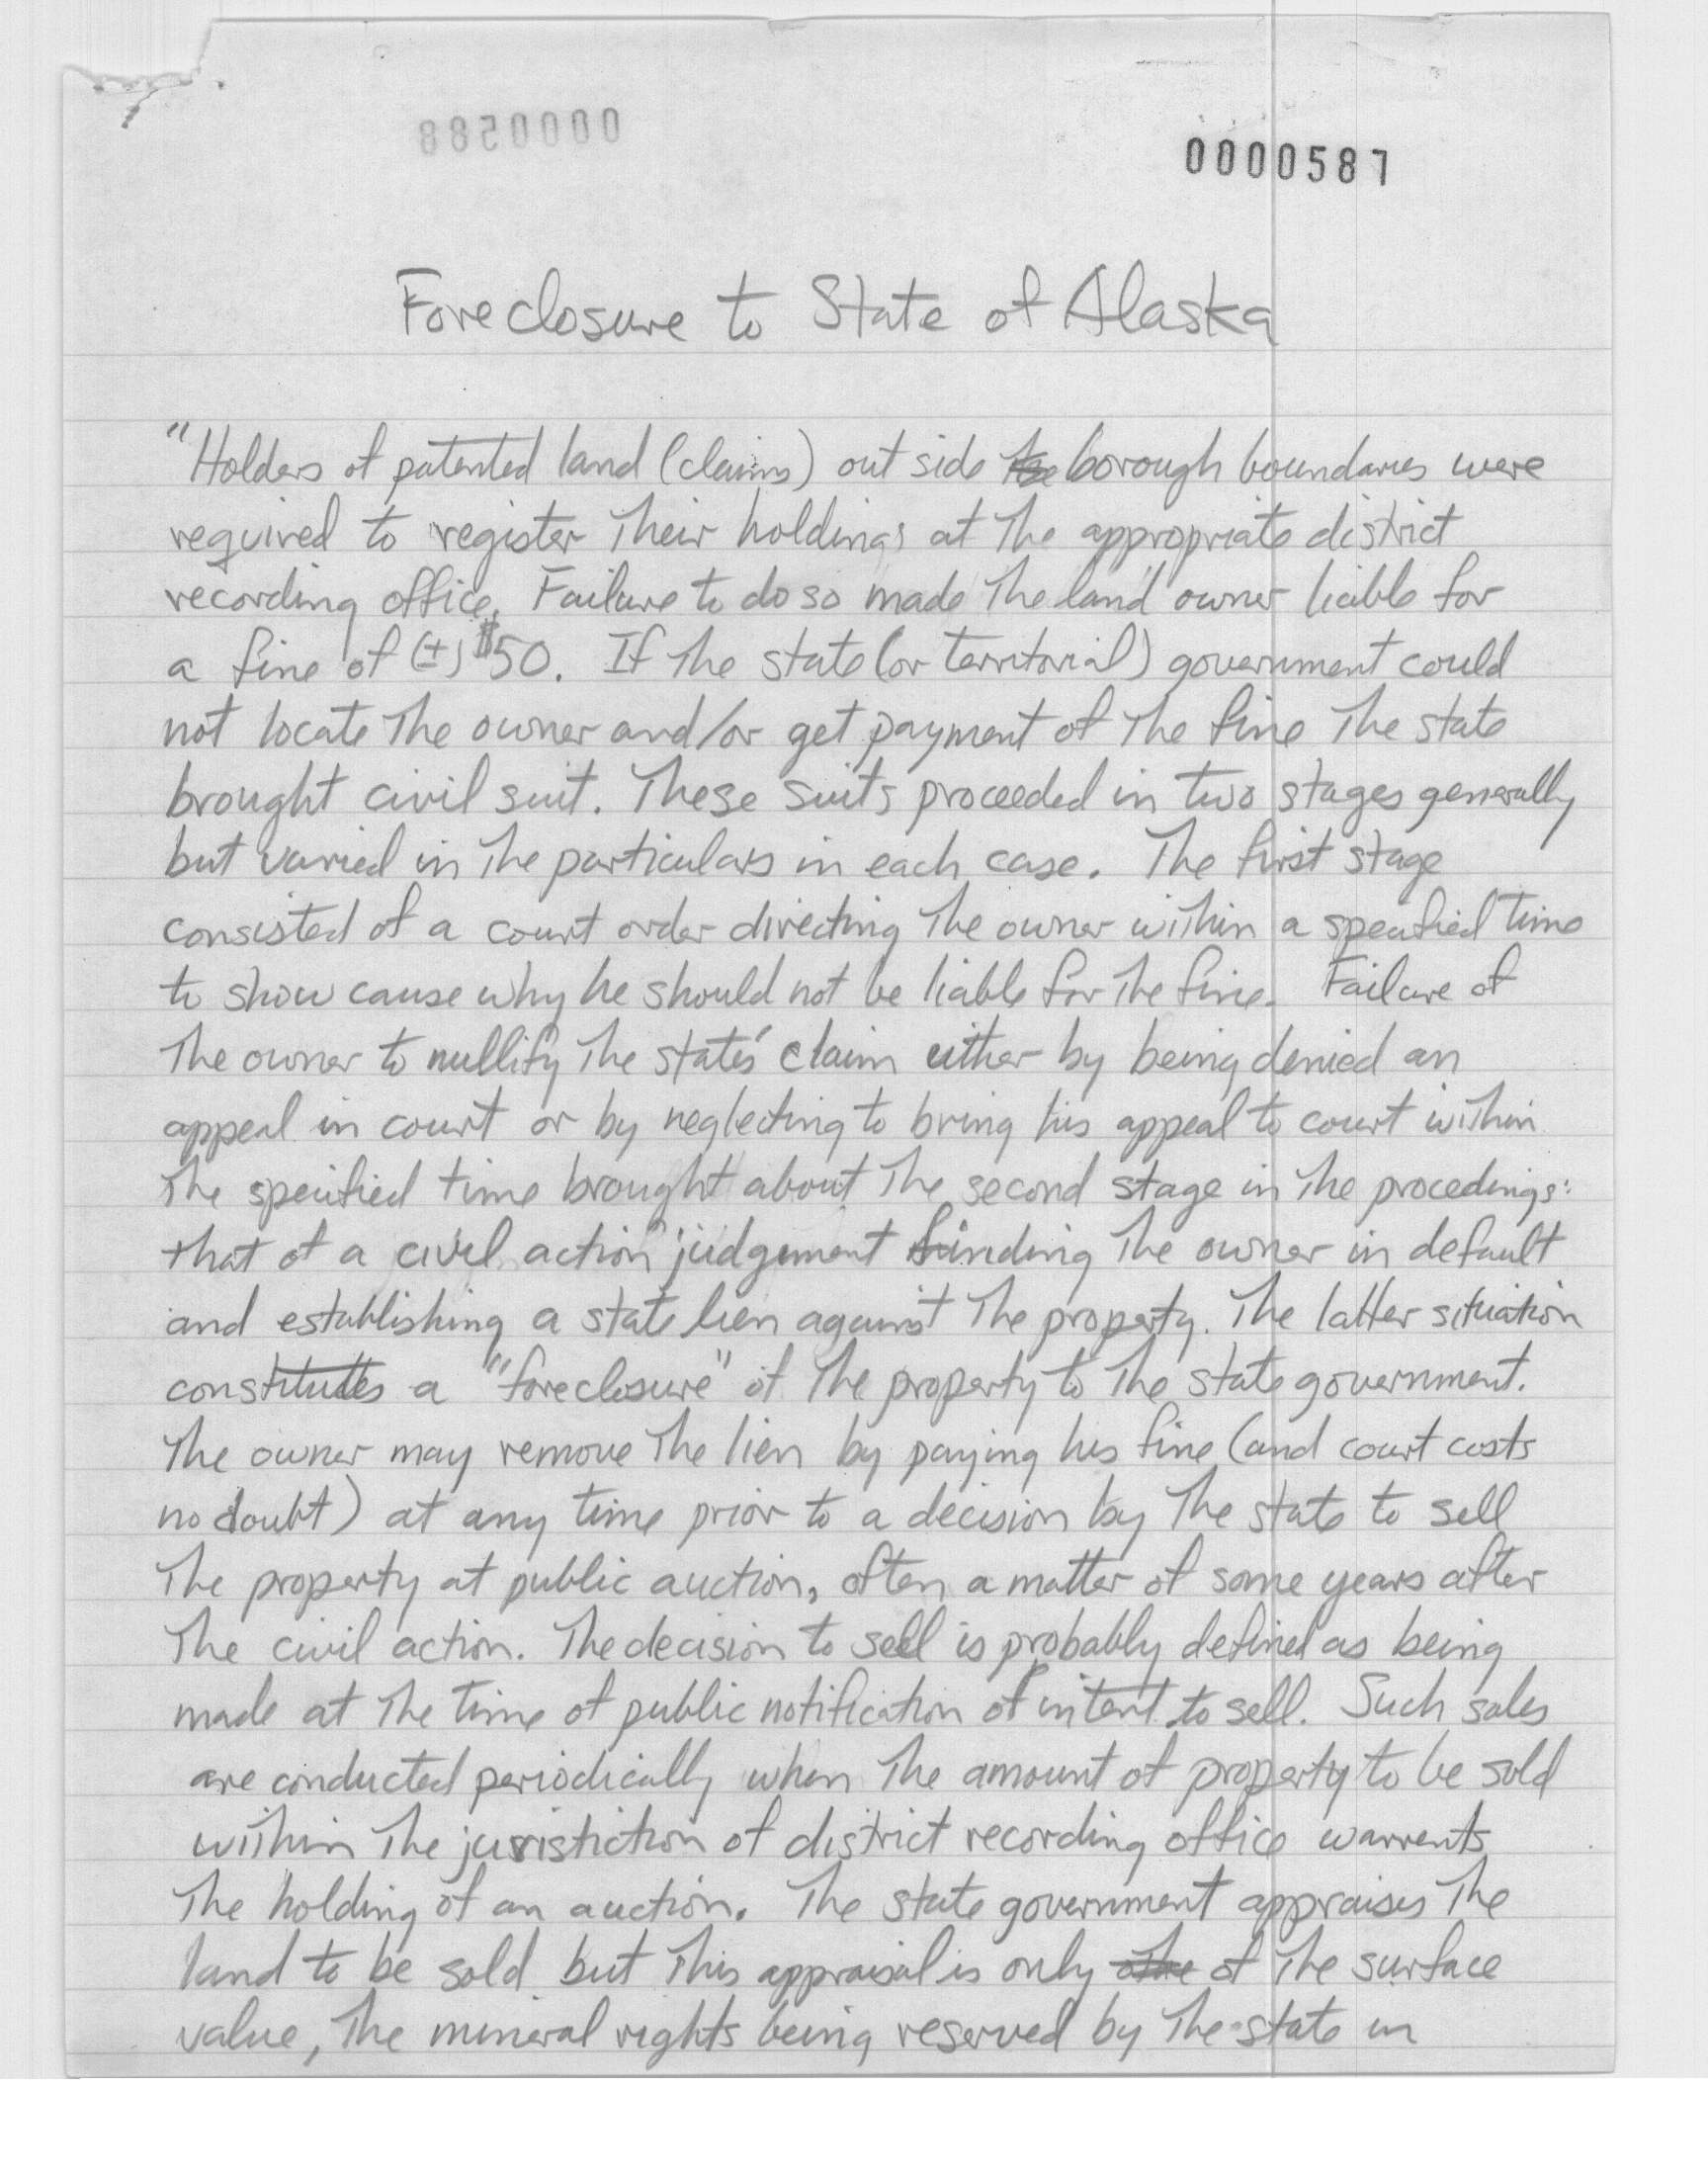 0000288
0000587
Foreclosure to State of Alaska
"Holders of patented land (claims) out side the borough boundaries were
required to register their holdings at the appropriate district
recording office. Failure to do so made the land owner liable for
a fine of (±) $50. If the state (or territorial) government could
not locate the owner and/or get payment of the fine the state
brought civil suit. These suits proceeded in two stages generally
but varied in the particulars in each case. The first stage
consisted of a court order directing the owner within a specified time
to show cause why he should not be liable for the fine. Failure of
the owner to nullify the states' claim either by being denied an
appeal in court or by neglecting to bring his appeal to court within
the specified time brought about the second stage in the procedings:
that of a civil action judgement finding the owner in default
and establishing a state lien against the property. The latter situation
constitutes a "foreclosure" of the property to the state government.
The owner may remove the lien by paying his fine (and court costs
no doubt) at any time prior to a decision by the state to sell
the property at public auction, often a matter of some years after
the civil action. The decision to sell is probably defined as being
made at the time of public notification of intent to sell. Such sales
are conducted periodically when the amount of property to be sold
within the juristiction of district recording office warrents
the holding of an auction. The state government appraises the
land to be sold but this appraisal is only of the surface
value, the mineral rights being reserved by the state in